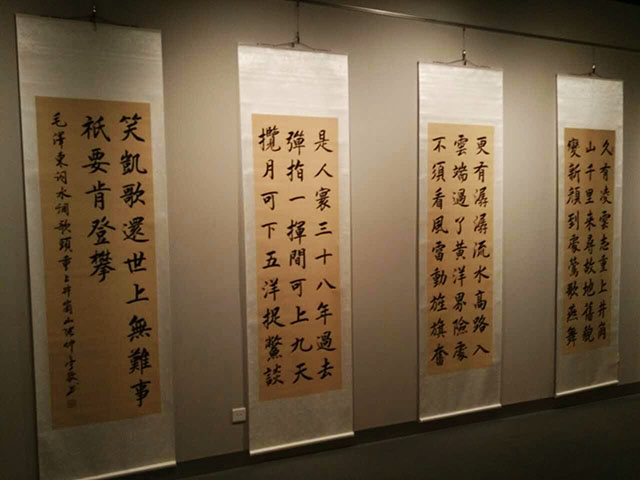 久有凌雲志重上井岡
山千里来尋故地舊貌
變新顔到處鶯歌燕舞
更有潺潺流水高路入
雲端過了黃洋界險處
不須看風雷動旌旗奮
是人寰三十八年過去
彈指一揮間可上九天
攬月可下五洋捉鱉談
笑凱歌還世上無難事
祇要肯登攀
毛澤東詞水調歌頭重上井岡山